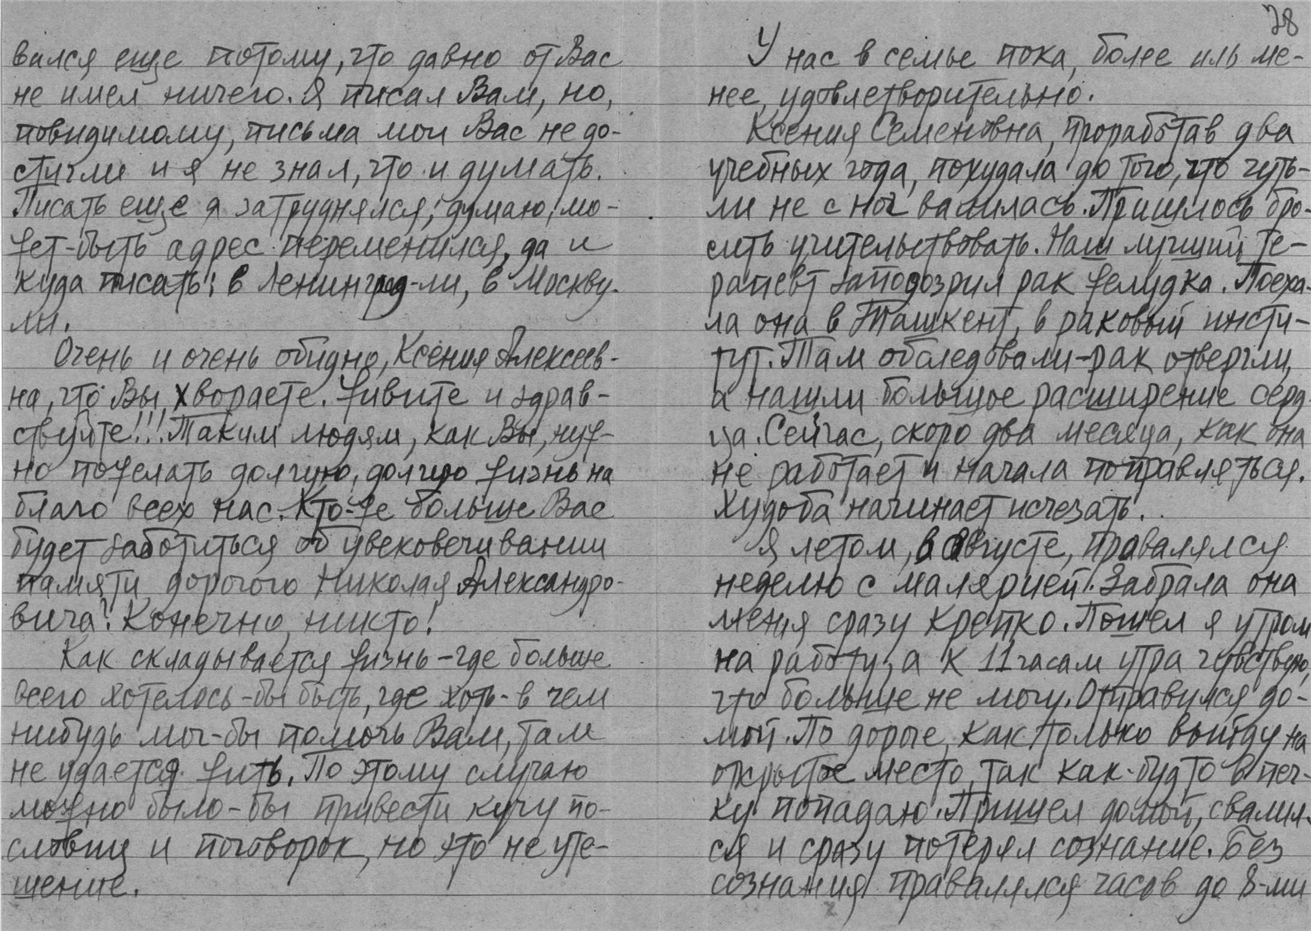 вился еще потому, что давно от Вас
не имел ничего. Я писал Вам, но,
повидимому, письма мои Вас не до-
стигли и я не знал, что и думать.
Писать еще я затруднялся; думаю, мо-
жет-быть адрес переменился, да и
куда писать: в Ленинград-ли, в Москву-
ли.
Очень и очень обидно, Ксения Алексеев-
на, что Вы хвораете. Живите и здрав-
ствуйте!!! Таким людям, как Вы, нуж-
но пожелать долгую, долгую жизнь на
благо всех нас. Кто-же больше Вас
будет заботиться об увековечивании
памяти дорогого Николая Александро-
вича? Конечно, никто!
Как складывается жизнь – где больше
всего хотелось-бы быть, где хоть-в чем
нибудь мог-бы помочь Вам, там
не удается жить. По этому случаю
можно было-бы привести кучу по-
словиц и поговорок, но это не уте-
шение.
28
У нас в семье пока, более иль ме-
нее, удовлетворительно.
Ксения Семеновна, проработав два
учебных года, похудала до того, что чуть-
ли не с ног валилась. Пришлось бро-
сить учительствовать. Наш лучший те-
рапевт заподозрил рак желудка. Поеха-
ла она в Ташкент, в раковый инсти-
тут. Там обследовали-рак отвергли,
а нашли большое расширение серд-
ца. Сейчас, скоро два месяца, как она
не работает и начала поправляться.
Худоба начинает исчезать.
Я летом, в августе, правалялся
неделю с малярией. Забрала она
меня сразу крепко. Пошел я утром
на работу, а к 11 часам утра чувствую,
что больше не могу. Отправился до-
мой. По дороге, как только выйду на
открытое место, так как-будто в печ-
ку попадаю. Пришел домой, свалил-
ся и сразу потерял сознание. Без
сознания правалялся часов до 8-ми